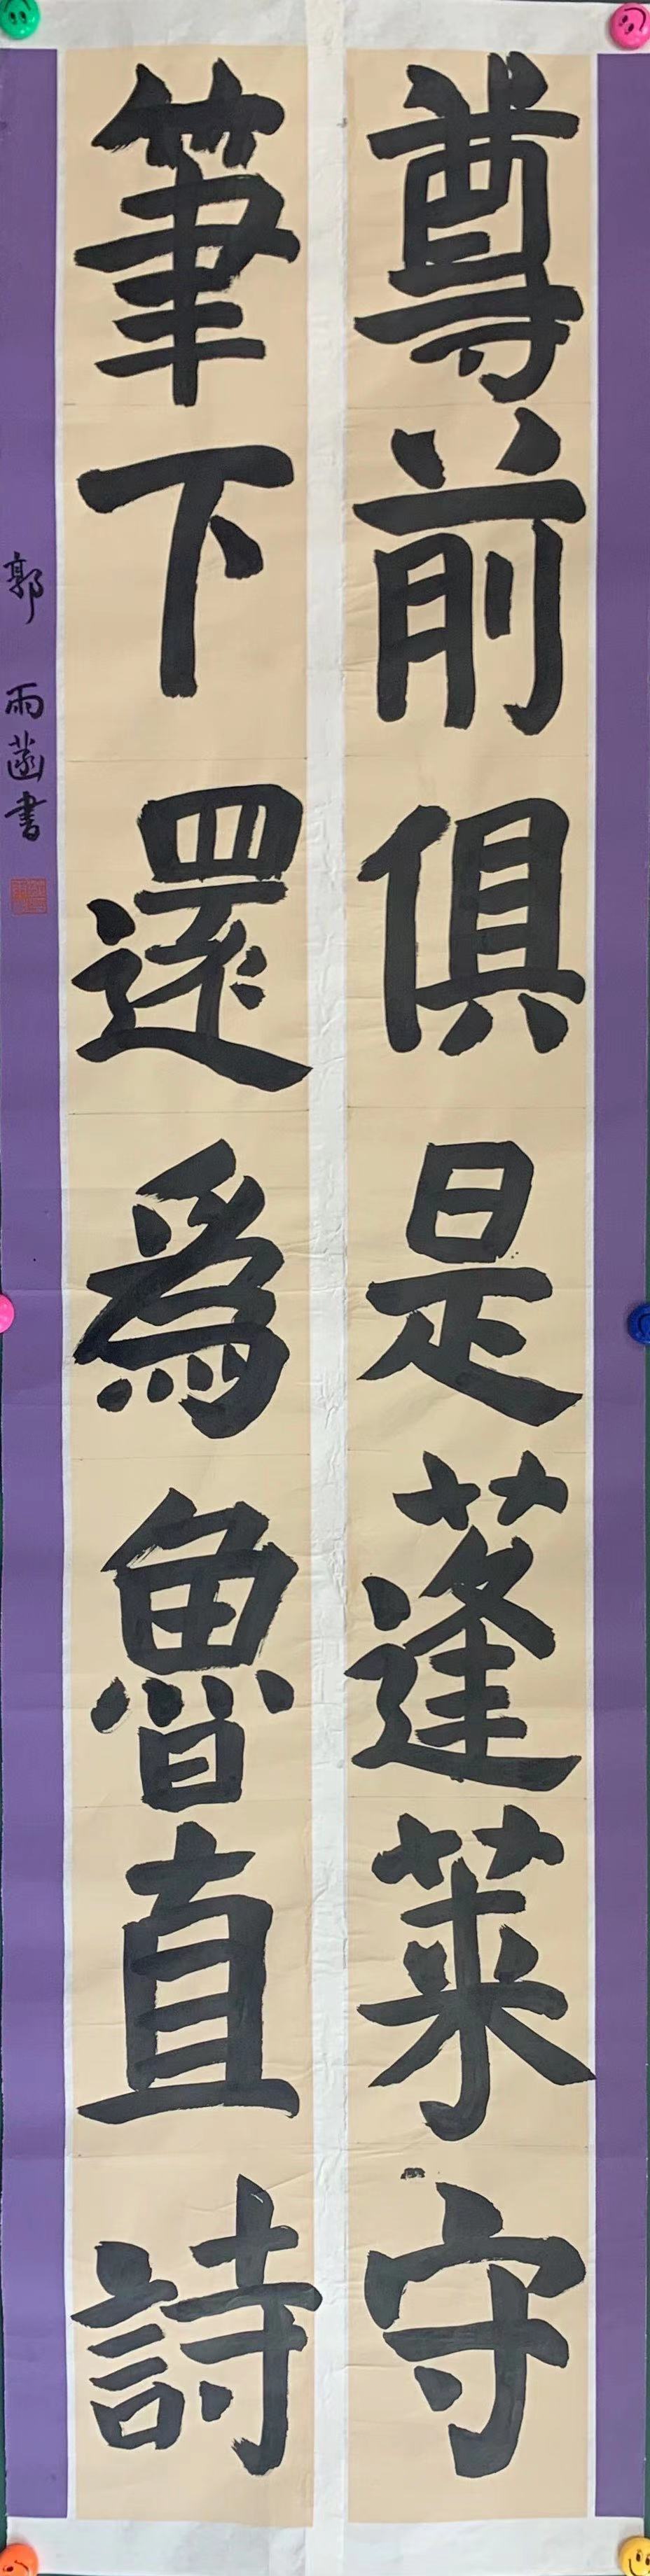 尊前俱是蓬萊守
筆下還爲魯直詩
郭雨菡書